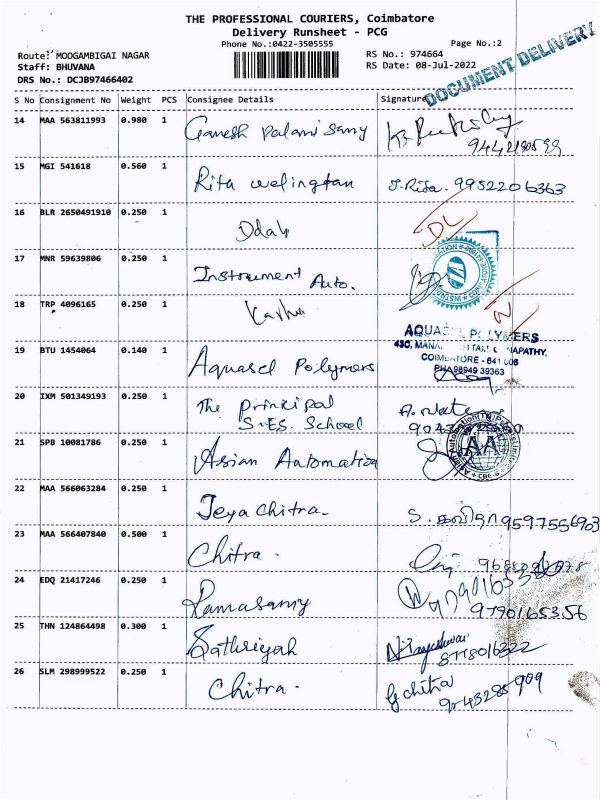 THE PROFESSIONAL COURIERS, Coimbatore
Delivery Runsheet - PCG
Phone No.:0422-3505555
Page No.:2
Route: MOOGAMBIGAI NAGAR
RS No.: 974664
Staff: BHUVANA
RS Date: 08-Jul-2022
DRS No.: DCJB97466402
DOCUMENT DELIVERY
S No Consignment No Weight PCS Consignee Details Signature
14 MAA 563811993 0.980 1 Ganesh Palanisamy
15 MGI 541618 0.560 1 Rita welington J. Rita. 9952206363
16 BLR 2650491910 0.250 1 Udah DL
17 MNR 59639806 0.250 1 Instrument Auto.
18 TRP 4096165 0.250 1
AQUASEL POLYMERS
COIMBATORE - 641 006
PH 98949 39363
19 BTU 1454064 0.140 1 Aquasel Polymers
20 IXM 501349193 0.250 1 The Principal
S.E.S. School
21 SPB 10081786 0.250 1 Asian Automation
22 MAA 566063284 0.250 1 Jeya Chitra. S. கவிதா 9597556963
23 MAA 566407840 0.500 1 Chitra.
24 EDQ 21417246 0.250 1 Ramasamy
9790165356
25 THN 124864498 0.300 1 Sathriyah N. Rajeshwari
8778016322
26 SLM 298999522 0.250 1 Chitra. G chitra
9043285909